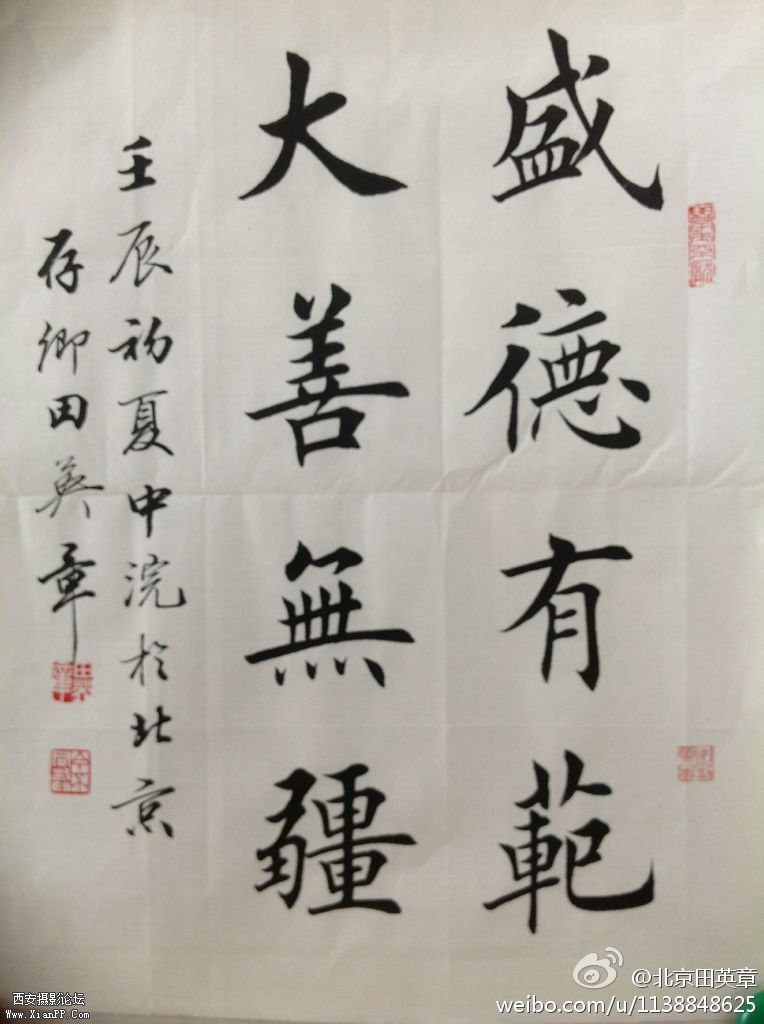 盛德有範
大善無疆
壬辰初夏中浣於北京
存卿田英章
西安摄影论坛
www.XianPP.Com
@北京田英章
weibo.com/u/1138848625